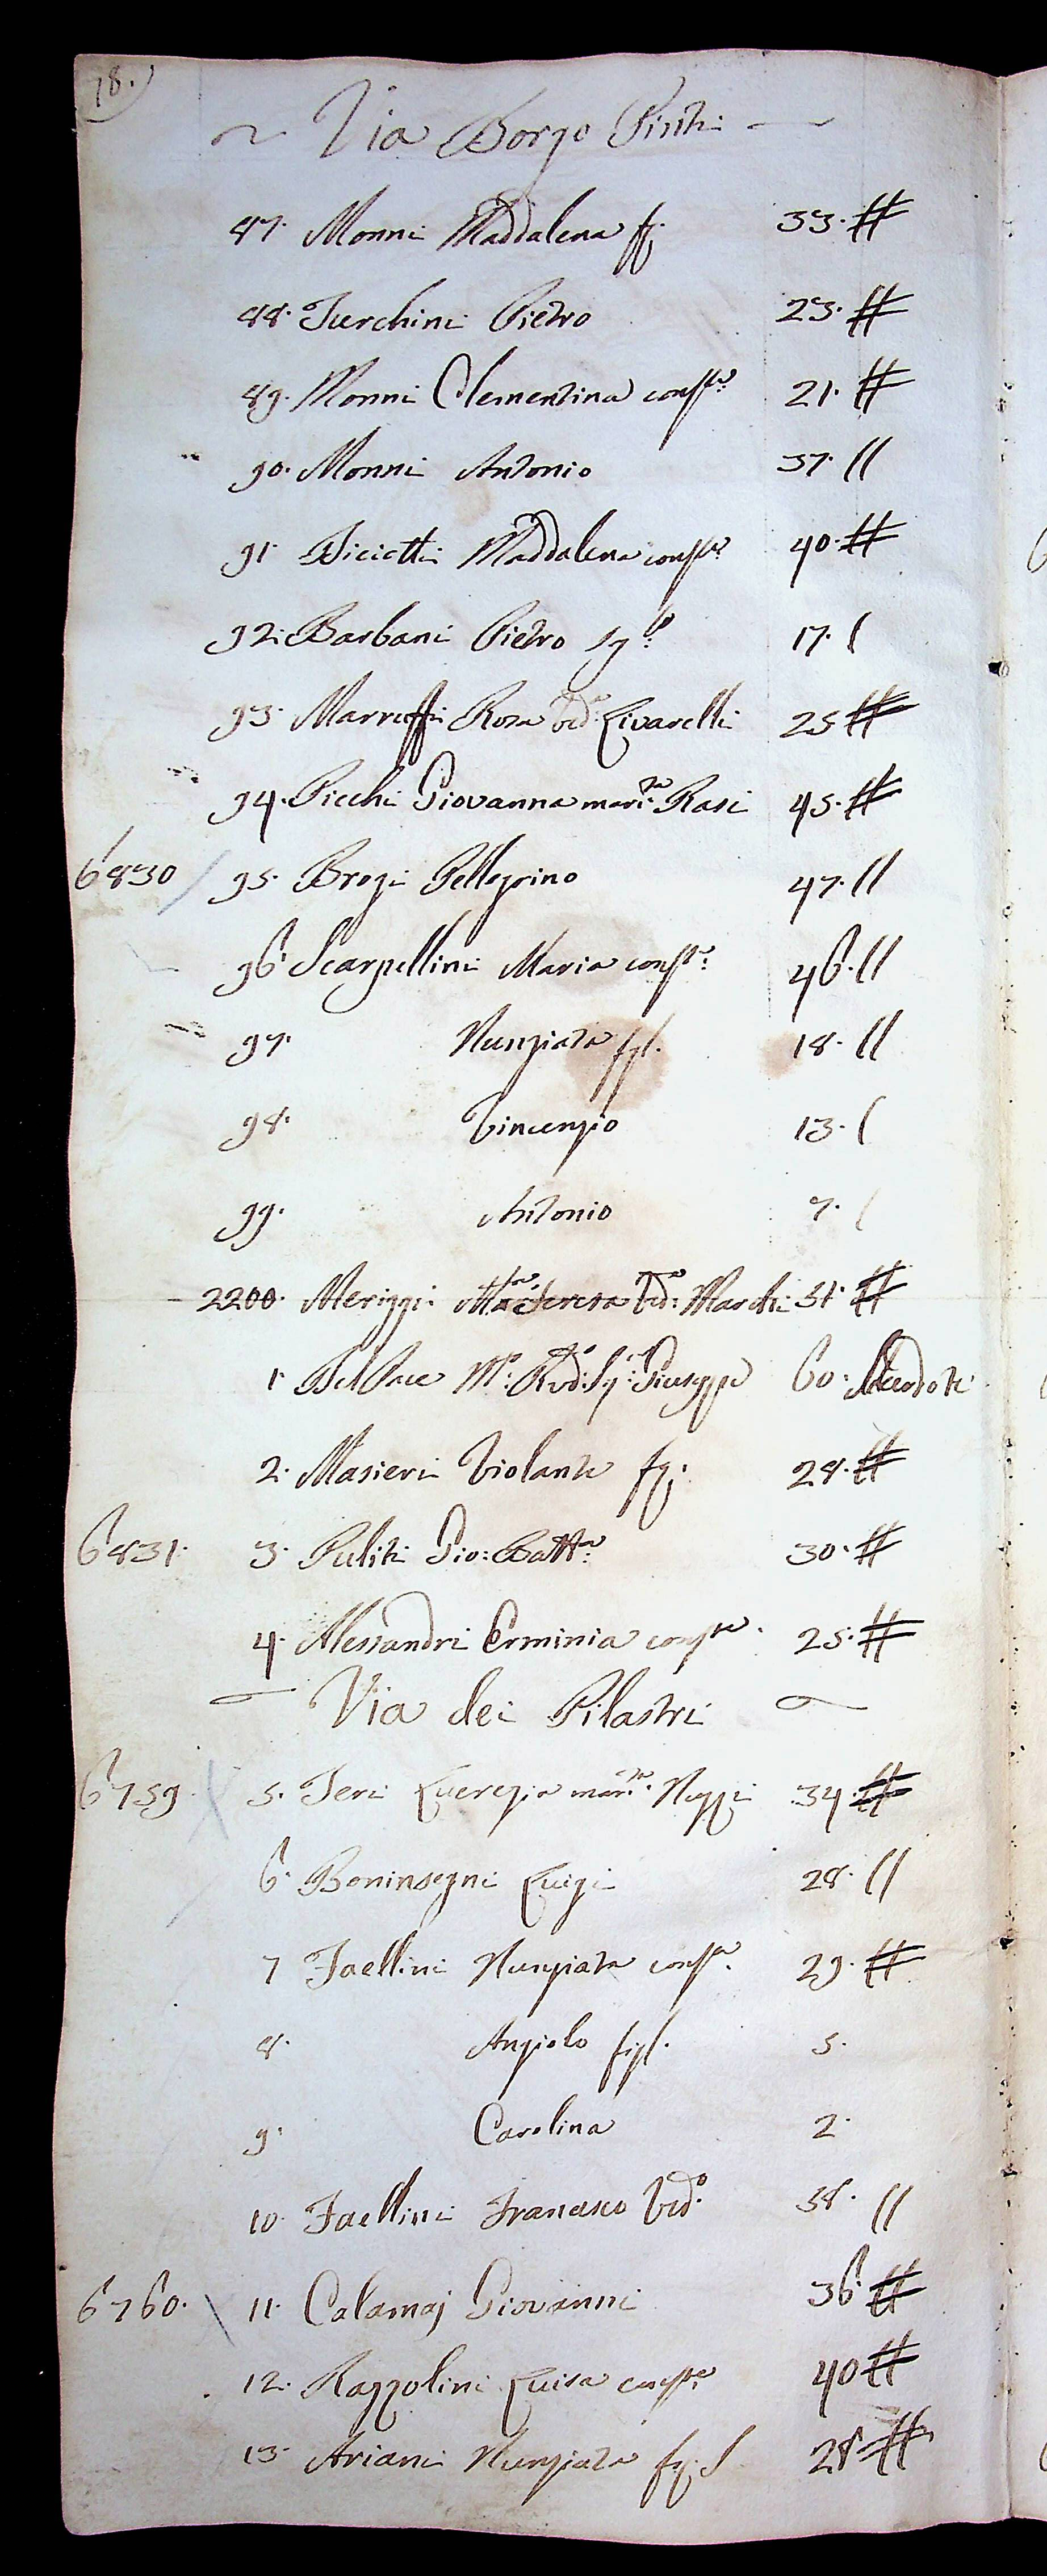 78.
Via Borgo Pinti
87. Monni Maddalena fg. 33.
88. Turchini Pietro 23.
89. Monni Clementina consta. 21.
90. Monni Antonio 37.
91. Maddalena consta. 40.
92. Barbani Pietro 17.
93. Marruffi Rosa ved. Livarelli 25
94. Picchi Giovanna marta. Rasi 45.
6830 95. Brogi Pellegrino 47.
96. Scarpellini Maria conste. 46.
97. Nunziata figl. 18.
98. Vincenzio 13.
99. Antonio 7.
2200. Merizzi Ma. Teresa Veda. Marchi 51.
1. Del Pace Mo. Rvdo. Sigr. Giuseppe 60. Sacerdote
2. Masieri Violante fg. 28.
6831. 3. Puliti Gio: Batta. 30.
4. Alessandri Erminia conste. 25.
Via dei Pilastri
6759 5. Teri Lucrezia marta. Nuzzi 34.
6. Boninsegni Luigi 28.
7 Faellini Nunziata consta. 29.
8. Angiolo figl. 5.
9. Carolina 2.
10. Faellini Francesco Vedo. 58.
6760. 11. Calamaj Giovanni 36.
12. Razzolini Luisa conste. 40
13. Ariani Nunziata fg. 28